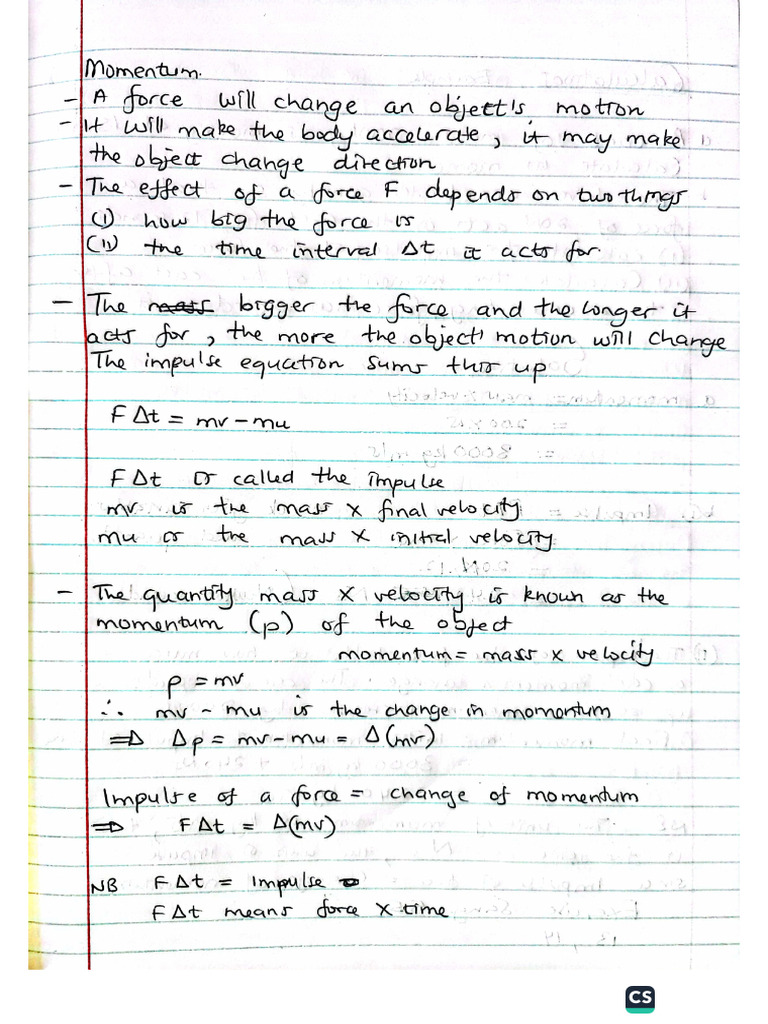 Momentum.
- A force will change an object's motion
- It will make the body accelerate, it may make
the object change direction
- The effect of a force F depends on two things
(i) how big the force is
(ii) the time interval Δt it acts for.
- The mass bigger the force and the longer it
acts for, the more the object' motion will change
The impulse equation sums this up
FΔt = mv - mu
FΔt is called the impulse
mv is the mass x final velocity
mu is the mass x initial velocity
- The quantity mass x velocity is known as the
momentum (p) of the object
momentum = mass x velocity
p = mv
∴ mv - mu is the change in momentum
⇒ Δp = mv - mu = Δ(mv)
Impulse of a force = change of momentum
⇒ FΔt = Δ(mv)
NB FΔt = Impulse
FΔt means force x time
CS